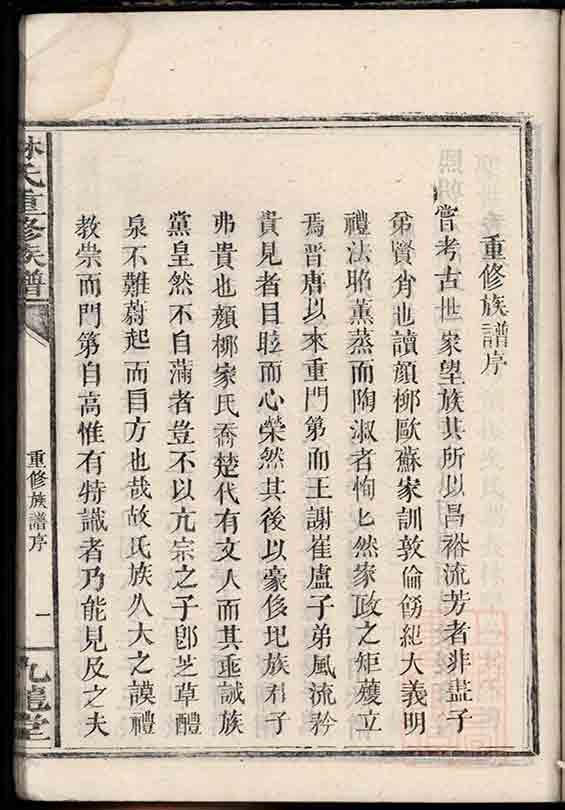 重修族譜序
嘗考古世家望族其所以昌裕流芳者非盡子
弟賢肖也讀顏柳歐蘇家訓敦倫飭紀大義明
禮法昭薰蒸而陶淑者恂恂然家政之矩矱立
焉晉唐以來重門第而王謝崔盧子弟風流矜
貴見者目眩而心榮然其後以豪侈圮族君子
弗貴也顏柳家氏喬楚代有文人而其垂誡族
黨皇然不自滿者豈不以亢宗之子卽芝草醴
泉不難蔚起而目方也哉故氏族久大之謨禮
教崇而門第自高惟有特識者乃能見及之夫
林氏重修族譜
重修族譜序
一
九龍堂